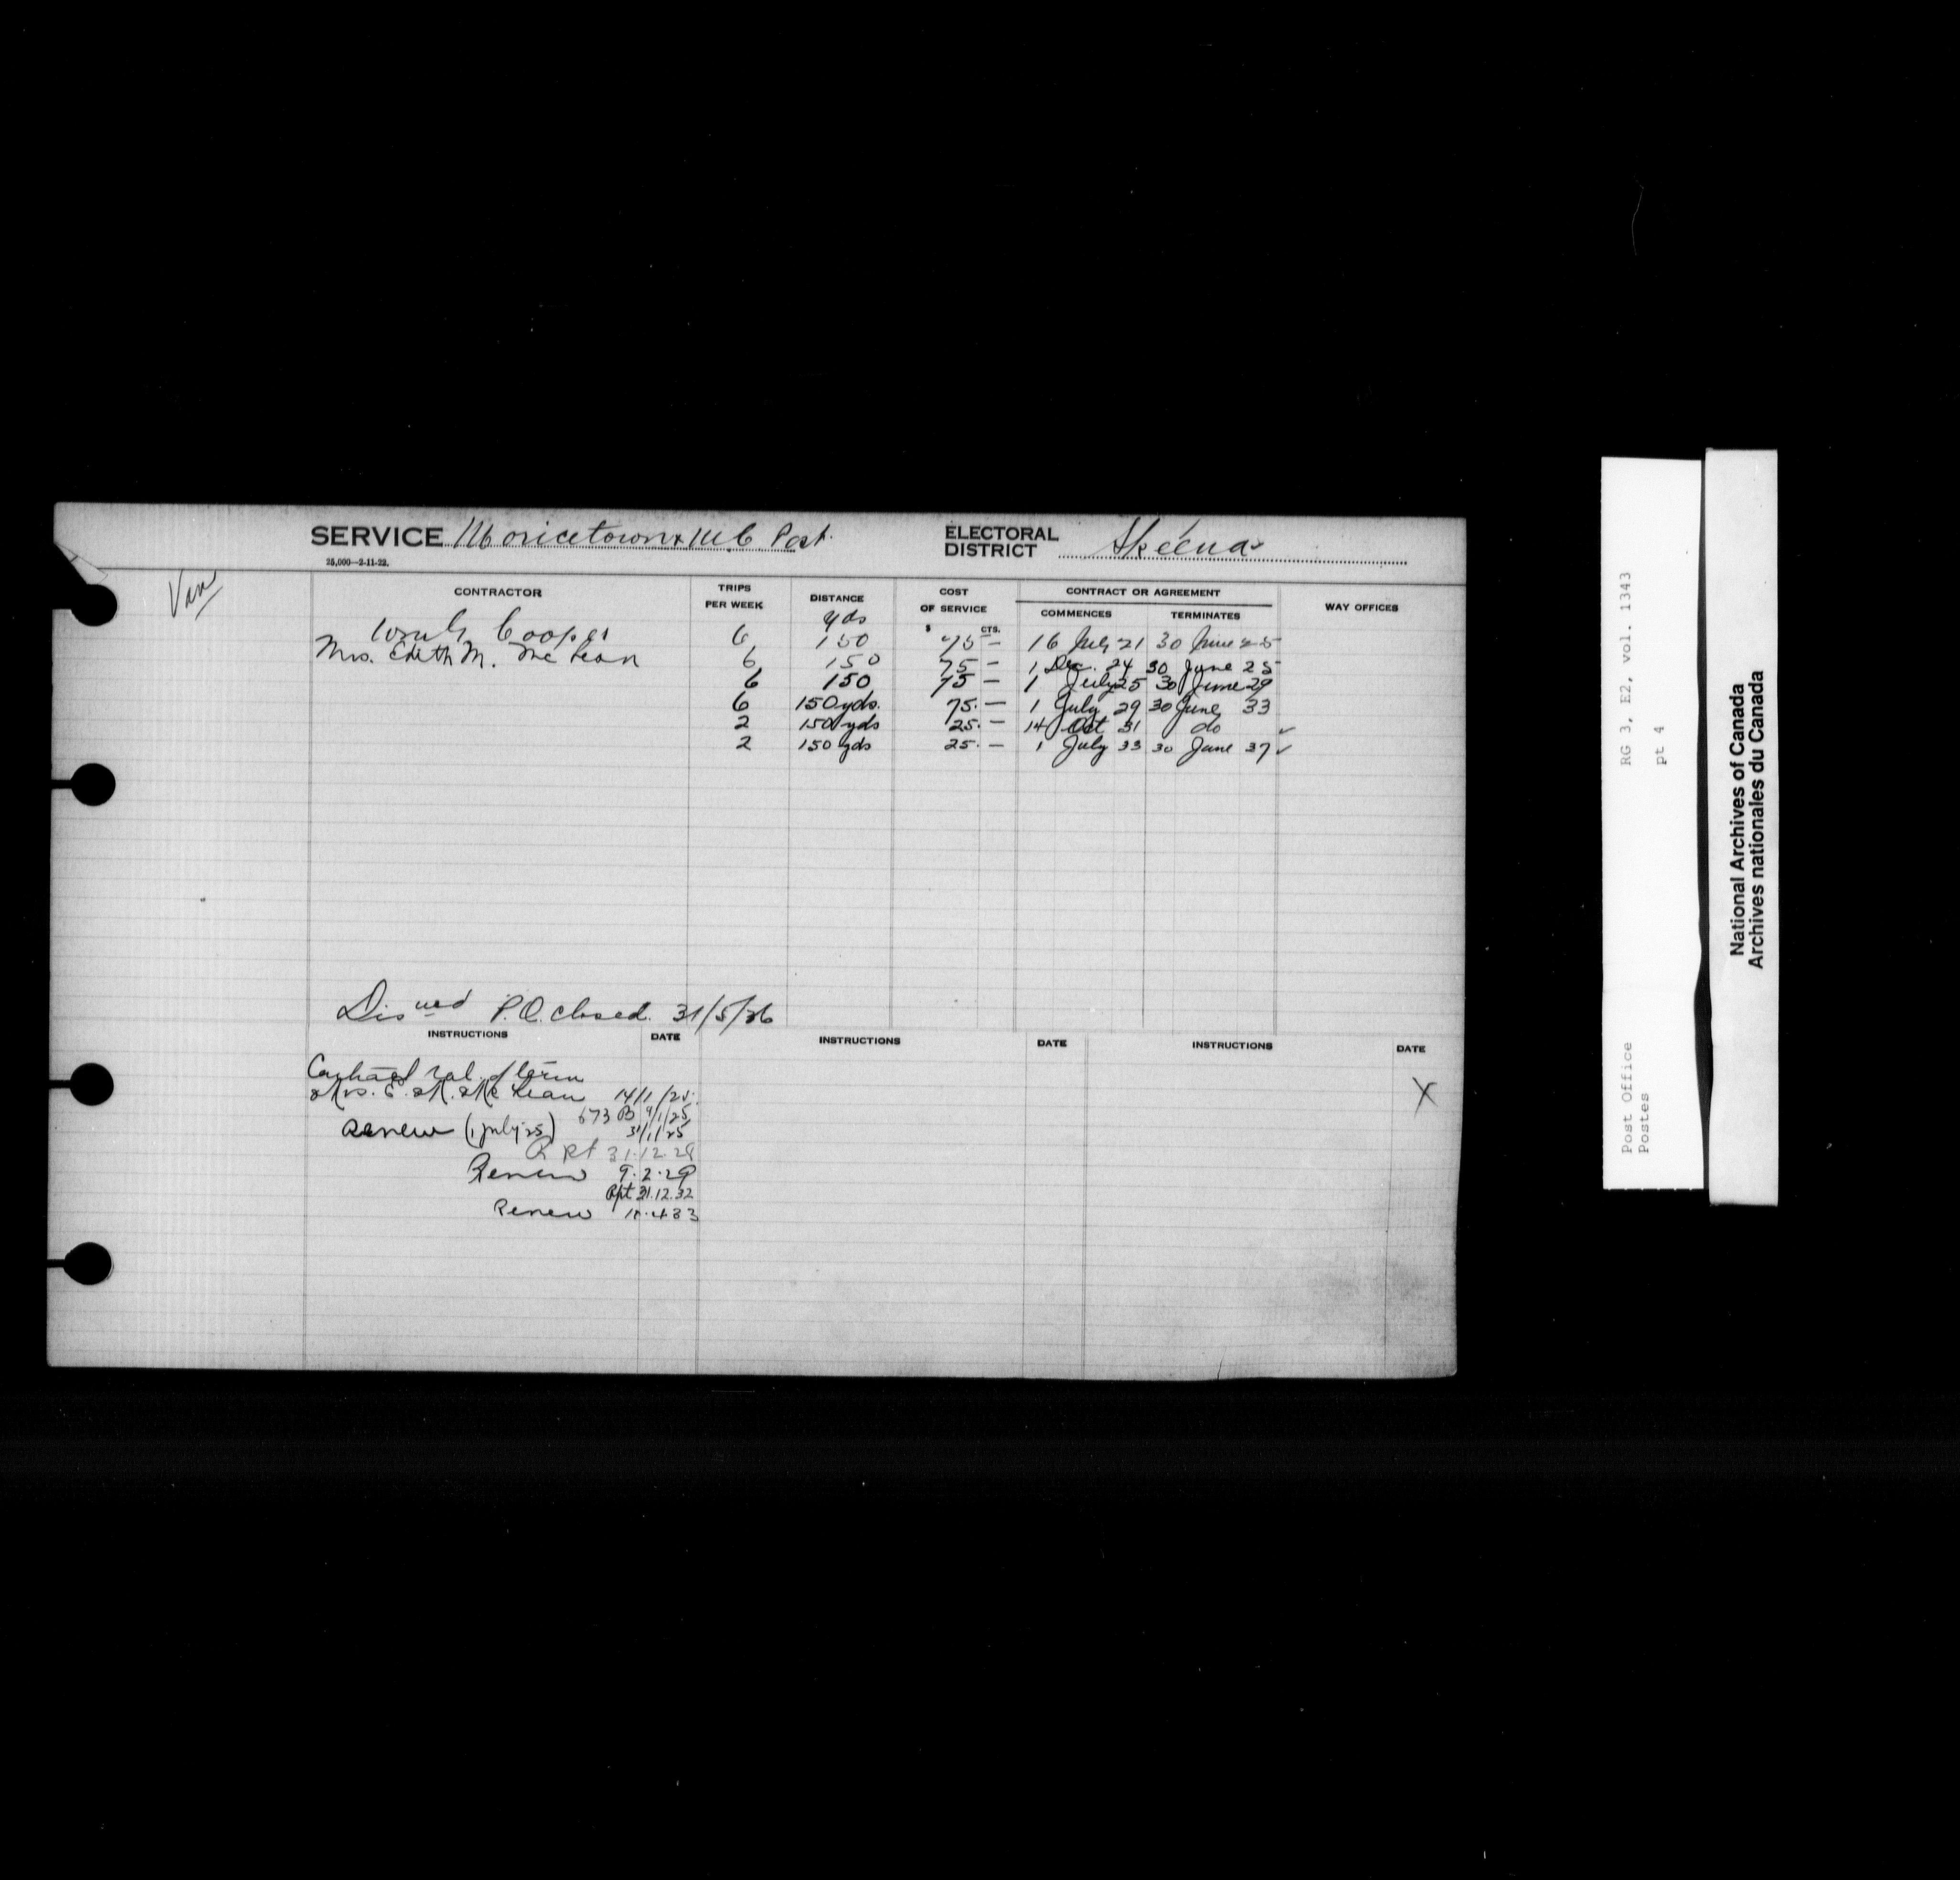 SERVICE Moricetown & Post ELECTORAL DISTRICT Skeena
25,000—2-11-22.
Van
CONTRACTOR TRIPS PER WEEK DISTANCE COST OF SERVICE CONTRACT OR AGREEMENT COMMENCES TERMINATES WAY OFFICES
yds $ CTS.
Cooper 6 150 75 — 16 July 21 30 June 25
Mrs. Edith M. McLean 6 150 75 — 1 Dec. 24 30 June 25
6 150 75 — 1 July 25 30 June 29
6 150 yds. 75. — 1 July 29 30 June 33
2 150 yds 25. — 14 Oct 31 do ✓
2 150 yds 25. — 1 July 33 30 June 37 ✓
Disued P.O. closed. 31/5/36
INSTRUCTIONS DATE INSTRUCTIONS DATE INSTRUCTIONS DATE
Contract bal. of term
Mrs. E. M. McLean 14/1/25. X
673 B 9/1/25
Renew (1 July 25) 31/1/25
R pt 31.12.28
Renew 9.2.29
Rpt 31.12.32
Renew 33
RG 3, E2, vol. 1343
pt 4
Post Office
Postes
National Archives of Canada
Archives nationales du Canada